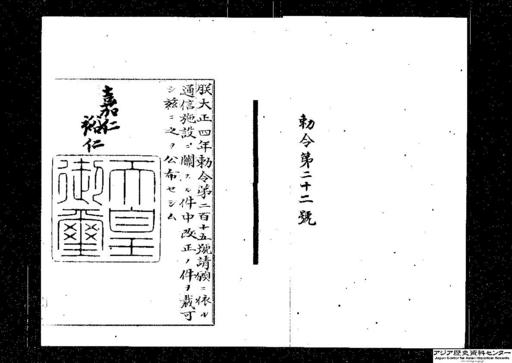 勅令第二十二號
朕大正四年勅令第二百十五號請願ニ依ル
通信施設ニ關スル件中改正ノ件ヲ裁可
シ玆ニ之ヲ公布セシム
嘉仁
裕仁
天皇
御璽
アジア歴史資料センター
Japan Center for Asian Historical Records